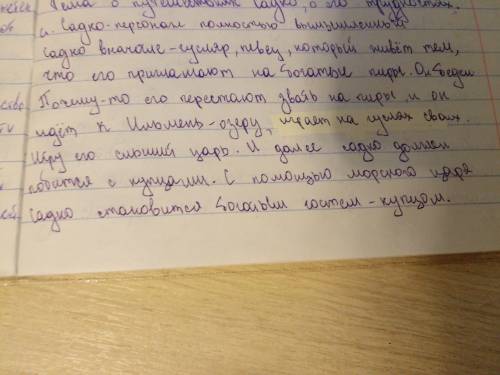 Тема о путешествиях Садко, о его трудностях.
а. Садко-персонаж полностью вымышленный
Садко вначале-гусляр, певец, который живёт тем,
что его приглашают на богатые пиры. Он беден
Почему-то его перестают звать на пиры и он
идёт к Ильмень-озеру, играет на гуслях своих.
Игру его слышит царь. И далее садко должен
побится с купцами. С помощью морского царя
Садко становится богатым гостем-купцом.